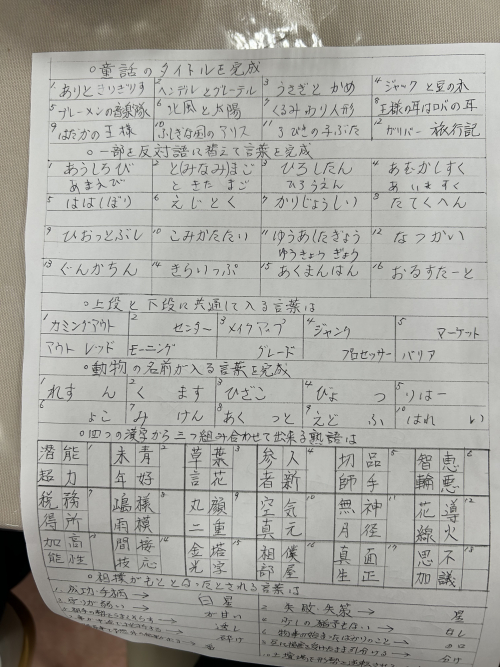 ○童話のタイトルを完成
1 ありときりぎりす 2 ヘンデルとグレーテル 3 うさぎと かめ 4 ジャックと豆の木
5 ブレーメンの音楽隊 6 北風と太陽 7 くるみわり人形 8 王様の耳はロバの耳
9 はだかの王様 10 ふしぎな国のアリス 11 3びきの子ぶた 12 ガリバー旅行記
○一部を反対語に替えて言葉を完成
1 あうしろび 2 と(みなみ)まご 3 ひろしたん 4 あむかしすく
あまえび ときたまご ひろうえん あいますく
5 ははしぼり 6 えじとく 7 かりじょうしい 8 たてくへん
9 ひおっとぶし 10 こみかたたい 11 ゆうあしたぎょう 12 なつかい
ゆうきょうぎょう
13 ぐんかちん 14 きらいっぷ 15 あくまんはん 16 おるすたーと
○上段と下段に共通して入る言葉は
1 カミングアウト 2 センター 3 メイクアップ 4 ジャンク 5 マーケット
アウトレッド モーニング グレード プロセッサー バリア
○動物の名前が入る言葉を完成
1 れす ん 2 く ます 3 ひざこ 4 びょ つ 5 りはー
6 ょこ 7 み けん 8 あく っと 9 えど ふ 10 はれ い
○四つの漢字から三つ組み合わせて出来る熟語は
潜能 1 未青 2 草葉 3 参入 4 切品 5 智恵 6
超力 年好 言花 者新 師手 輪悪
税務 7 嶋様 8 丸顔 9 空気 10 無神 11 花導 12
得所 雨横 二重 真元 月径 線火
加高 13 間接 14 金塔 15 祖僕 16 真面 17 思不 18
能性 技応 光字 部屋 生正 加議
○相撲がもとと合ったとされる言葉は
1. 成功 手柄 → 白星 2. 失敗 失策 → 星